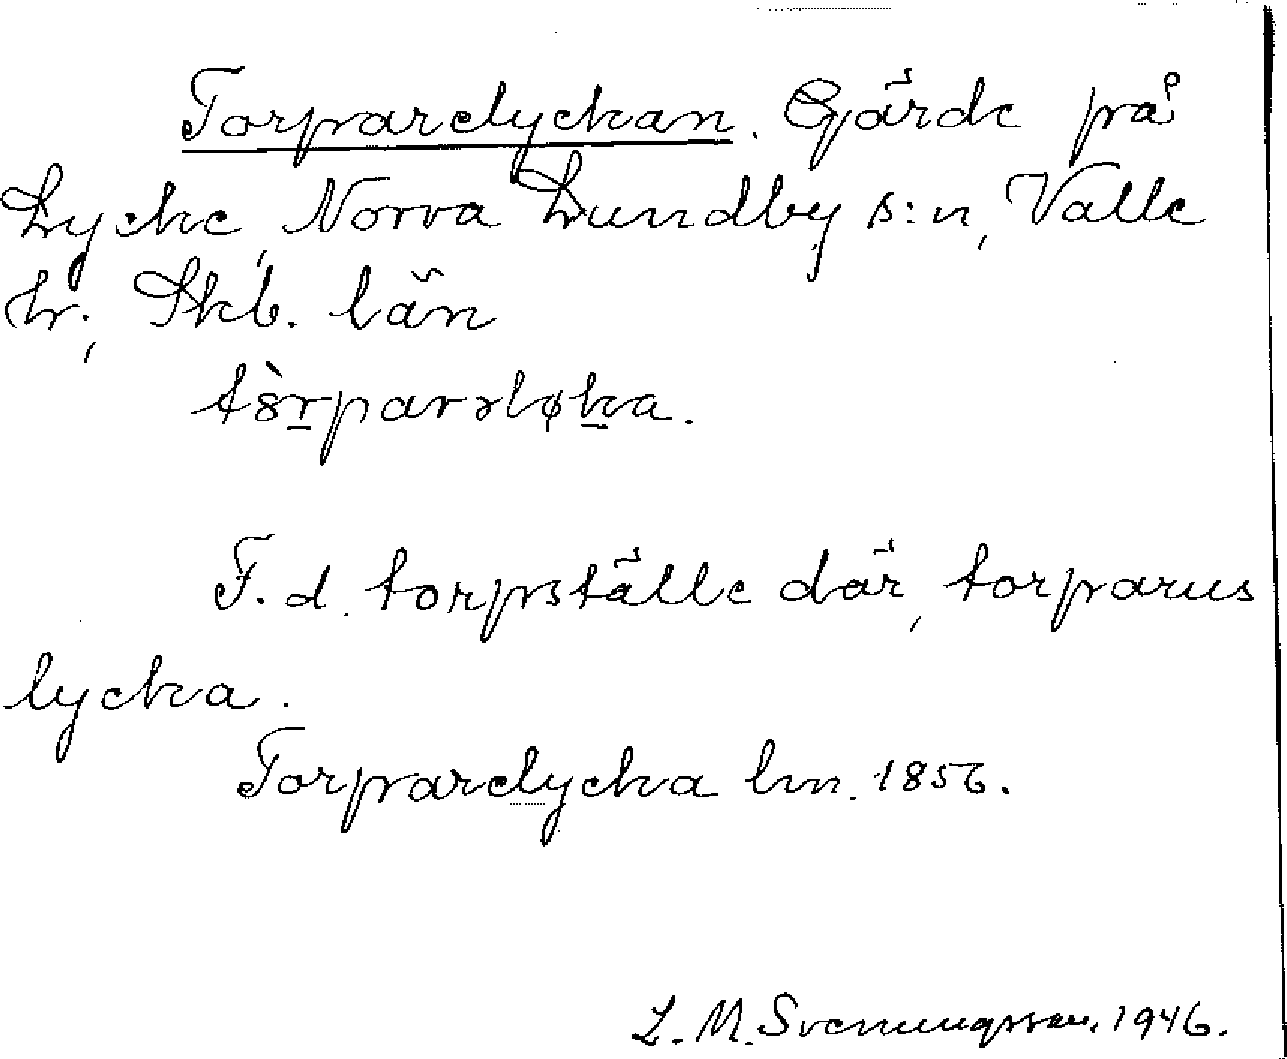 Torparelyckan. Gärde på
Lycke, Norra Lundby s:n, Valle
hr, Skb. län
tòrparəløka.
F.d. torpställe där, torparens
lycka.
Torparelycka lm. 1856.
L. M. Svenungsson. 1946.